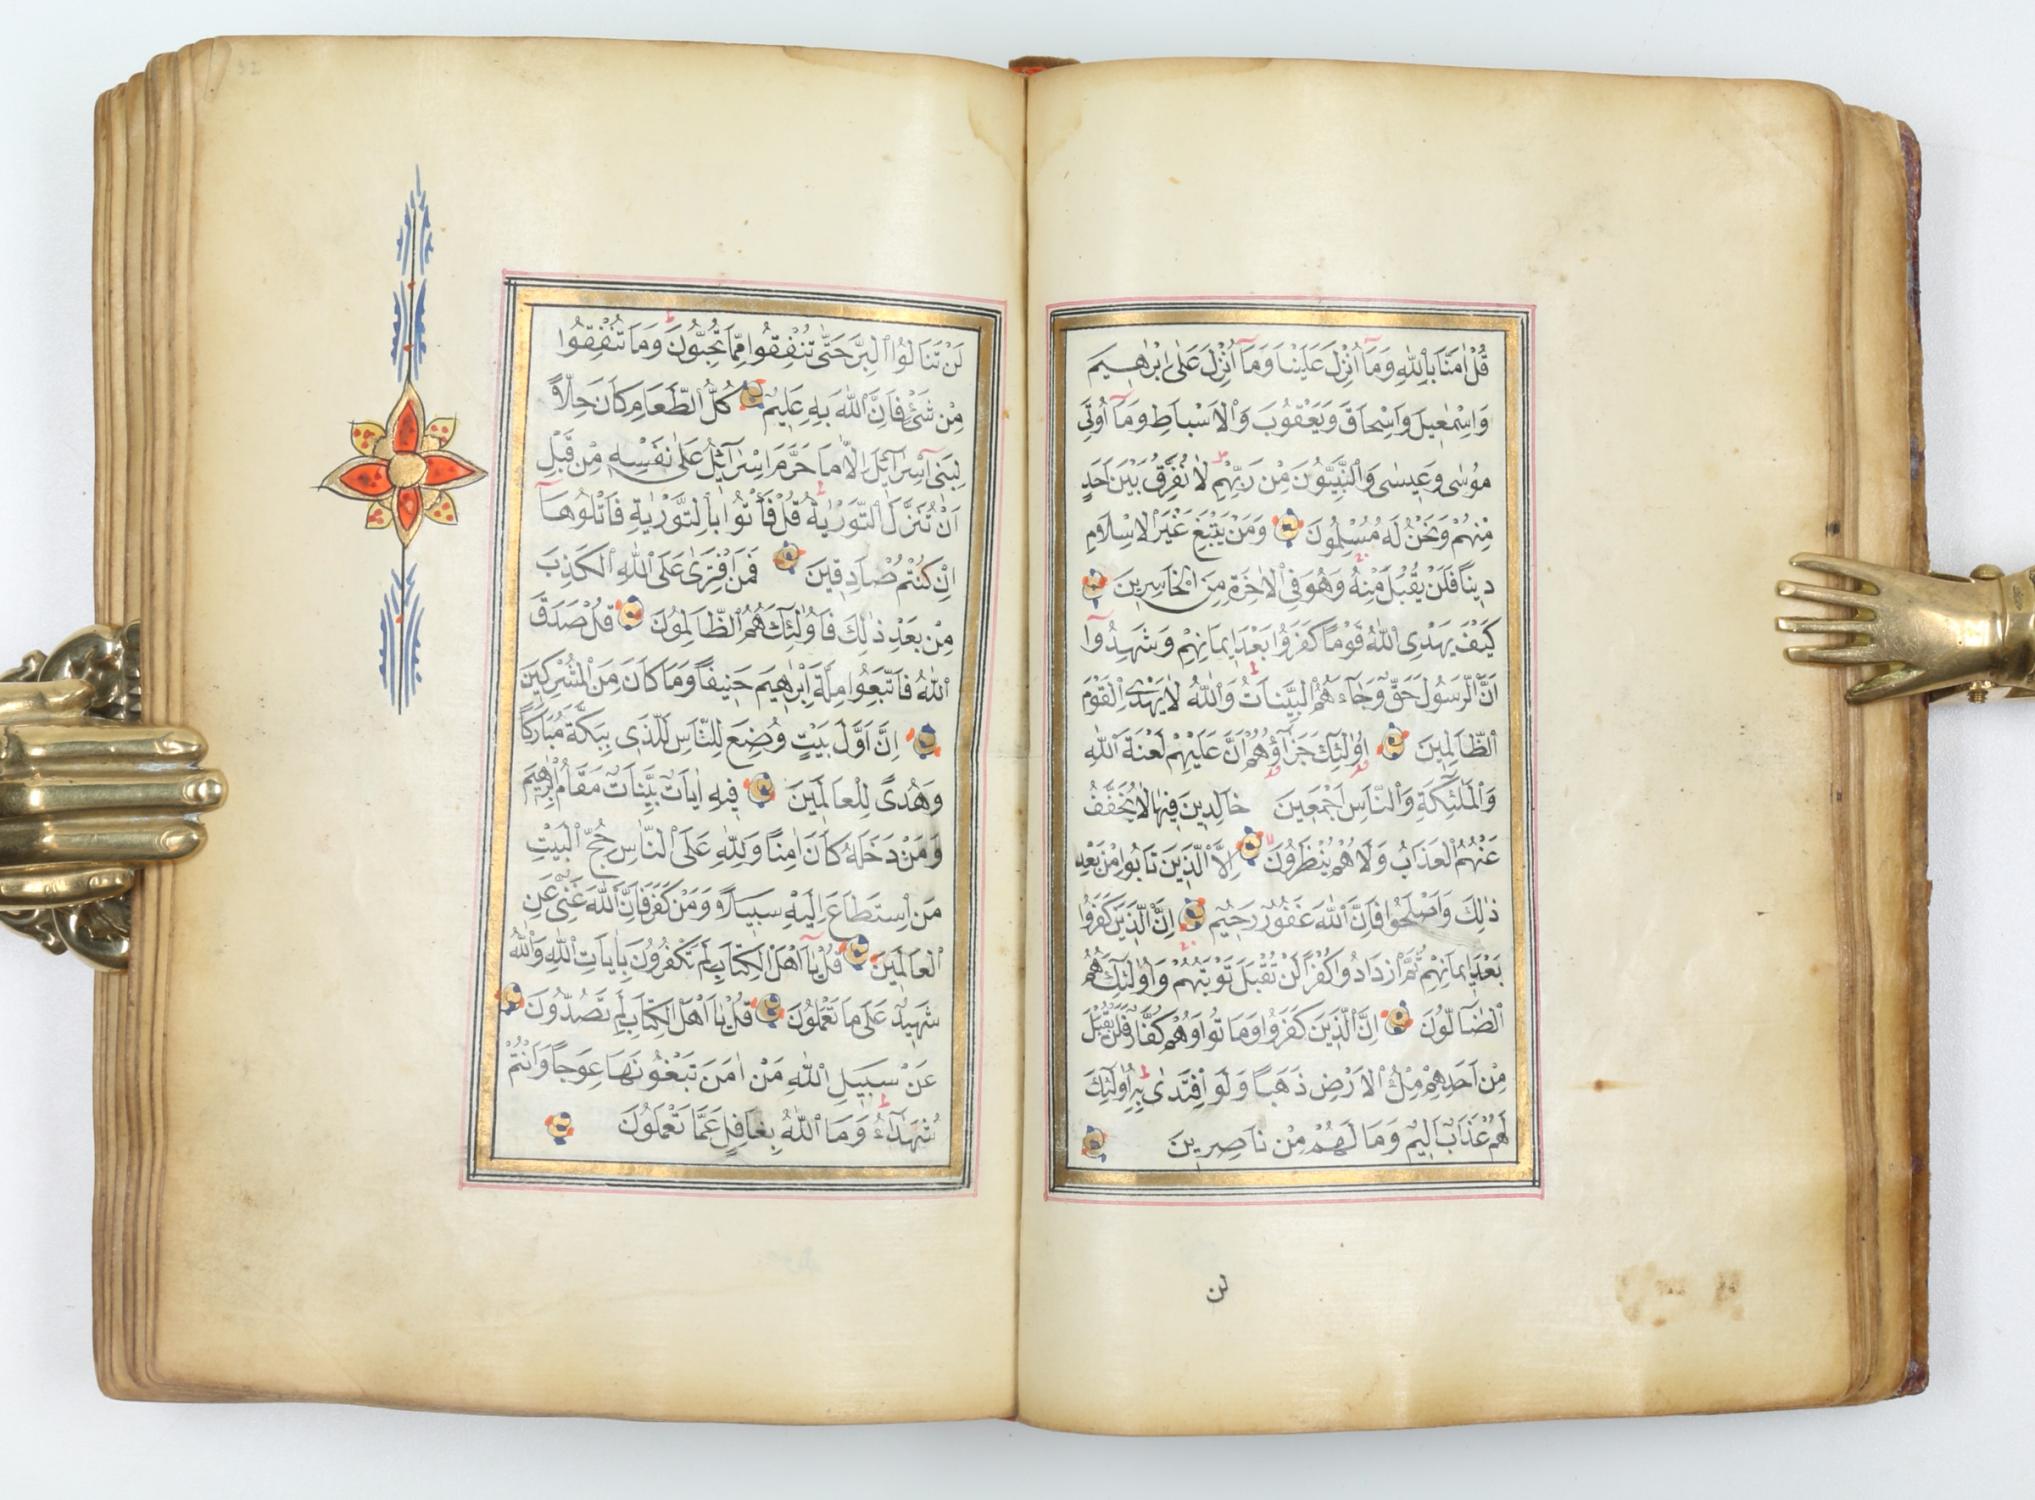 قُلْ اٰمَنَّا بِاللّٰهِ وَمَآ اُنْزِلَ عَلَيْنَا وَمَآ اُنْزِلَ عَلٰى اِبْرٰهِيمَ
وَاِسْمٰعِيلَ وَاِسْحٰاقَ وَيَعْقُوبَ وَالْاَسْبَاطِ وَمَآ اُوتِىَ
مُوسٰى وَعِيسٰى وَالنَّبِيُّونَ مِنْ رَبِّهِمْ لَا نُفَرِّقُ بَيْنَ اَحَدٍ
مِنْهُمْ وَنَحْنُ لَهُ مُسْلِمُونَ وَمَنْ يَبْتَغِ غَيْرَ الْاِسْلَامِ
دِيناً فَلَنْ يُقْبَلَ مِنْهُ وَهُوَ فِى الْاٰخِرَةِ مِنَ الْخَاسِرِينَ
كَيْفَ يَهْدِى اللّٰهُ قَوْماً كَفَرُوا بَعْدَ اِيمَانِهِمْ وَشَهِدُوآ
اَنَّ الرَّسُولَ حَقٌّ وَجَاءَهُمُ الْبَيِّنَاتُ وَاللّٰهُ لَا يَهْدِى الْقَوْمَ
الظَّالِمِينَ اُولٰئِكَ جَزَآؤُهُمْ اَنَّ عَلَيْهِمْ لَعْنَةَ اللّٰهِ
وَالْمَلٰئِكَةِ وَالنَّاسِ اَجْمَعِينَ خَالِدِينَ فِيهَا لَا يُخَفَّفُ
عَنْهُمُ الْعَذَابُ وَلَا هُمْ يُنْظَرُونَ اِلَّا الَّذِينَ تَابُوا مِنْ بَعْدِ
ذٰلِكَ وَاَصْلَحُوا فَاِنَّ اللّٰهَ غَفُورٌ رَحِيمٌ اِنَّ الَّذِينَ كَفَرُوا
بَعْدَ اِيمَانِهِمْ ثُمَّ ازْدَادُوا كُفْراً لَنْ تُقْبَلَ تَوْبَتُهُمْ وَاُولٰئِكَ هُمُ
الضَّآلُّونَ اِنَّ الَّذِينَ كَفَرُوا وَمَاتُوا وَهُمْ كُفَّارٌ فَلَنْ يُقْبَلَ
مِنْ اَحَدِهِمْ مِلْءُ الْاَرْضِ ذَهَباً وَلَوِ افْتَدٰى بِهِ اُولٰئِكَ
لَهُمْ عَذَابٌ اَلِيمٌ وَمَا لَهُمْ مِنْ نَاصِرِينَ
لن
لَنْ تَنَالُوا الْبِرَّ حَتّٰى تُنْفِقُوا مِمَّا تُحِبُّونَ وَمَا تُنْفِقُوا
مِنْ شَىْءٍ فَاِنَّ اللّٰهَ بِهِ عَلِيمٌ كُلُّ الطَّعَامِ كَانَ حِلًّا
لِبَنِىٓ اِسْرَآئِلَ اِلَّا مَا حَرَّمَ اِسْرَآئِلُ عَلٰى نَفْسِهِ مِنْ قَبْلِ
اَنْ تُنَزَّلَ التَّوْرٰيةُ قُلْ فَأْتُوا بِالتَّوْرٰيةِ فَاتْلُوهَآ
اِنْ كُنْتُمْ صَادِقِينَ فَمَنِ افْتَرٰى عَلَى اللّٰهِ الْكَذِبَ
مِنْ بَعْدِ ذٰلِكَ فَاُولٰئِكَ هُمُ الظَّالِمُونَ قُلْ صَدَقَ
اللّٰهُ فَاتَّبِعُوا مِلَّةَ اِبْرٰهِيمَ حَنِيفاً وَمَا كَانَ مِنَ الْمُشْرِكِينَ
اِنَّ اَوَّلَ بَيْتٍ وُضِعَ لِلنَّاسِ لَلَّذِى بِبَكَّةَ مُبَارَكاً
وَهُدًى لِلْعَالَمِينَ فِيهِ اٰيَاتٌ بَيِّنَاتٌ مَقَامُ اِبْرٰهِيمَ
وَمَنْ دَخَلَهُ كَانَ اٰمِناً وَلِلّٰهِ عَلَى النَّاسِ حِجُّ الْبَيْتِ
مَنِ اسْتَطَاعَ اِلَيْهِ سَبِيلًا وَمَنْ كَفَرَ فَاِنَّ اللّٰهَ غَنِىٌّ عَنِ
الْعَالَمِينَ قُلْ يَآ اَهْلَ الْكِتَابِ لِمَ تَكْفُرُونَ بِاٰيَاتِ اللّٰهِ وَاللّٰهُ
شَهِيدٌ عَلٰى مَا تَعْمَلُونَ قُلْ يَا اَهْلَ الْكِتَابِ لِمَ تَصُدُّونَ
عَنْ سَبِيلِ اللّٰهِ مَنْ اٰمَنَ تَبْغُونَهَا عِوَجاً وَاَنْتُمْ
شُهَدَآءُ وَمَا اللّٰهُ بِغَافِلٍ عَمَّا تَعْمَلُونَ